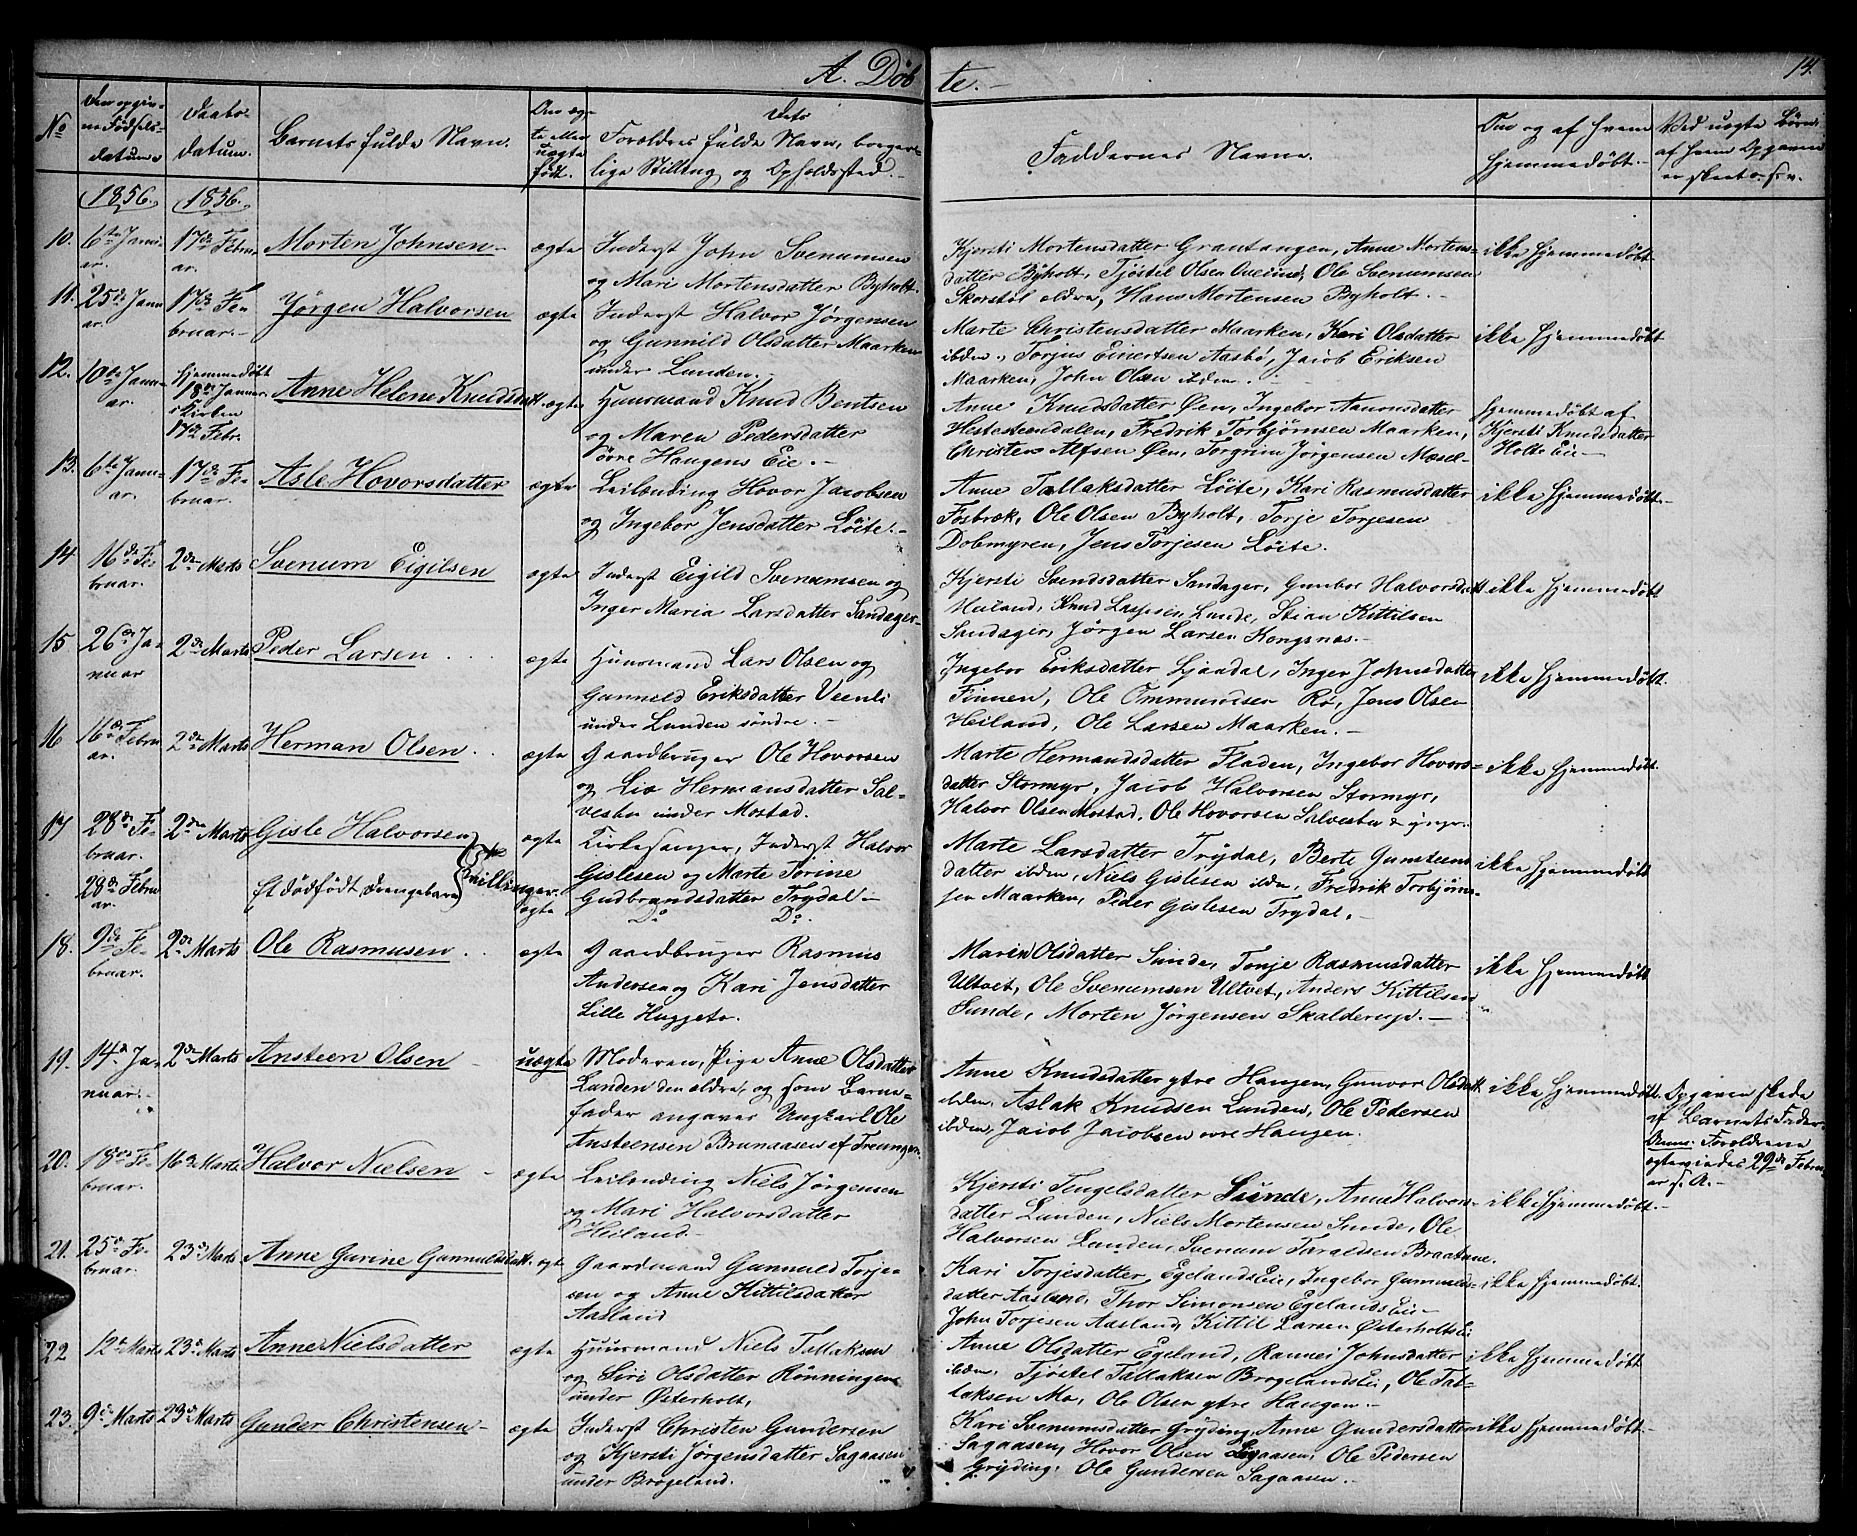 A. Døb te. 14.
No
Den opgiv-
ne Fødsels-
datum
Daabs-
datum.
Barnets fulde Navn.
Om æg-
te eller
uægte
født.
Dets
Forældres fulde Navn, borger-
lige Stilling og Opholdssted.
Faddernes Navne.
Om og af hvem
hjemmedøbt.
Ved uægte Børn
af hvem Opgaven
er skeet o. s. v.
1856. 1856.
10. 6te Janu-
ar. 17de Febru-
ar. Morten Johnsen ægte Inderst John Svenumsen
og Mari Mortensdatter Byholt.
Kjersti Mortensdatter Grantangen, Anne Mortens-
datter Byholt, Tjöstil Olsen, Ole Svenumsen
Skorstöl eldre, Hans Mortensen Byholt.
ikke hjemmedøbt
11. 25de Janu-
ar. 17de Fe-
bruar. Jørgen Halvorsen ægte Inderst Halvor Jørgensen
og Gunnild Olsdatter Maarken
under Lunden.
Marte Christensdatter Maarken, Kari Olsdatter
ibden., Torjus Einertsen Aasbö, Jacob Eriksen
Maarken, John Olsen ibden.
ikke hjemmedøbt
12. 10de Janu-
ar. hjemmedøbt
18de Januar.
i Kirken
17de Febr. Anne Helene Knudsdatt. ægte Huusmand Knud Bentsen
og Maren Pedersdatter
övre Haugens Eie.
Anne Knudsdatter Öen, Ingebor Aanonsdatter
Hestesteendalen, Fredrik Torbjörnsen Maarken,
Christen Alfsen Öen, Torgrim Jörgensen Mæsel.
hjemmedøbt af
Kjersti Knudsdatter
Holte Eie
13. 6te Janu-
ar. 17de Fe-
bruar. Asle Hovorsdatter ægte Leilending Hovor Jacobsen
og Ingebor Jensdatter Löite.
Anne Tallaksdatter Löite, Kari Rasmusdatter
Fosbræk, Ole Olsen Byholt, Torje Torjesen
Dobmyren, Jens Torjesen Löite.
ikke hjemmedøbt.
14 16de Fe-
bruar. 2de Marts Svenum Eigilsen ægte Inderst Eigild Svenumsen og
Inger Maria Larsdatter Sandager
Kjersti Svendsdatter Sandager, Gunbor Halvorsdatt
Heiland, Knud Larsen Lunde, Stian Kittilsen
Sandager, Jörgen Larsen Kongsnæs.
ikke hjemmedøbt
15 26de Ja-
nuar 2de Marts Peder Larsen ægte Huusmand Lars Olsen og
Gunneld Eriksdatter Veenli
under Lunden söndre.
Ingebor Eriksdatter Ljaadal, Inger Johnsdatter
Finnen, Ole Ommundsen Rö, Jens Olsen
Heiland, Ole Larsen Maarken.
ikke hjemmedøbt.
16 16de Febru-
ar. 2de Marts Herman Olsen ægte Gaardbruger Ole Hovorsen
og Liv Hermansdatter Sal-
vesten under Mostad.
Marte Hermandsdatter Fladen, Ingebor Hovors-
datter Stormyr, Jacob Halvorsen Stormyr,
Halvor Olsen Mostad, Ole Hovorsen Salvesten d yngr.
ikke hjemmedøbt.
17 28de Fe-
bruar. 2de Marts Gisle Halvorsen ægte Kirkesanger, Inderst Halvor
Gislesen og Marte Torine
Gudbrandsdatter Trydal
Marte Larsdatter Trydal, Berte Gunsteens-
datter ibden, Niels Gislesen ibden, Fredrik Torbjörn-
sen Maarken, Peder Gislesen Trydal.
ikke hjemmedøbt
28de Febru-
ar. Et dödfödt Drengebarn Tvillinger. ægte Do. Do.
18. 9de Fe-
bruar. 2de Marts Ole Rasmusen ægte Gaardbruger Rasmus
Andersen og Kari Jensdatter
Lille Huggeto.
Maren Olsdatter Sunde, Tonje Rasmusdatter
Ultvet, Ole Svenumsen Ultvet, Anders Kittilsen
Sunde, Morten Jörgensen Skalderup.
ikke hjemmedøbt
19. 14de Ja-
nuar. 2de Marts Ansteen Olsen uægte Moderen, Pige Anne Olsdatter
Lunden den eldre, og som Barne-
fader angaves Ungkarl Ole
Ansteensen Brunaasen af Treungen.
Anne Knudsdatter ytre Haugen, Gunvor Olsdatt
ibden, Aslak Knudsen Lunden, Ole Pedersen
ibden, Jacob Jacobsen övre Haugen.
ikke hjemmedøbt. Opgaven skede
af Barnets Fader
Anm: Forældrene
ægteviedes 29de Febru-
ar s. A.
20. 18de Fe-
bruar. 16de Marts Halvor Nielsen ægte Leilending Niels Jörgensen
og Mari Halvorsdatter
Heiland
Kjersti Tengelsdatter Sunde, Anne Halvors-
datter Lunden, Niels Mortensen Sunde, Ole
Halvorsen Lunden, Svenum Taraldsen Braatane.
ikke hjemmedøbt.
21. 25de Fe-
bruar. 23de Marts Anne Gurine Gunnuldsdatt. ægte Gaardmand Gunnuld Torje-
sen og Anne Kittilsdatter
Aasland
Kari Torjesdatter Egelands Eie, Ingebor Gunnulds-
datter Aasland, Thor Simonsen Egelands Eie
John Torjesen Aasland, Kittil Larsen Österholts Ei
ikke hjemmedøbt.
22 12te Marts 23de Marts Anne Nielsdatter ægte Huusmand Niels Tallaksen
og Siri Olsdatter Rönningen
under Österholt,
Anne Olsdatter Egeland, Rannei Johnsdatter
ibden, Tjöstel Tallaksen Brogelands Ei, Ole Tal-
laksen Mo, Ole Olsen ytre Haugen.
ikke hjemmedøbt
23. 9de Marts 23de Marts Gunder Christensen ægte Inderst Christen Gundersen
og Kjersti Jörgensdatter Sagaasen
under Brogeland.
Kari Svenumsdatter Gryding, Anne Gundersdatter
Sagaasen, Hovor Olsen Sagaasen, Ole Pedersen
Gryding, Ole Gundersen Sagaasen.
ikke hjemmedøbt.